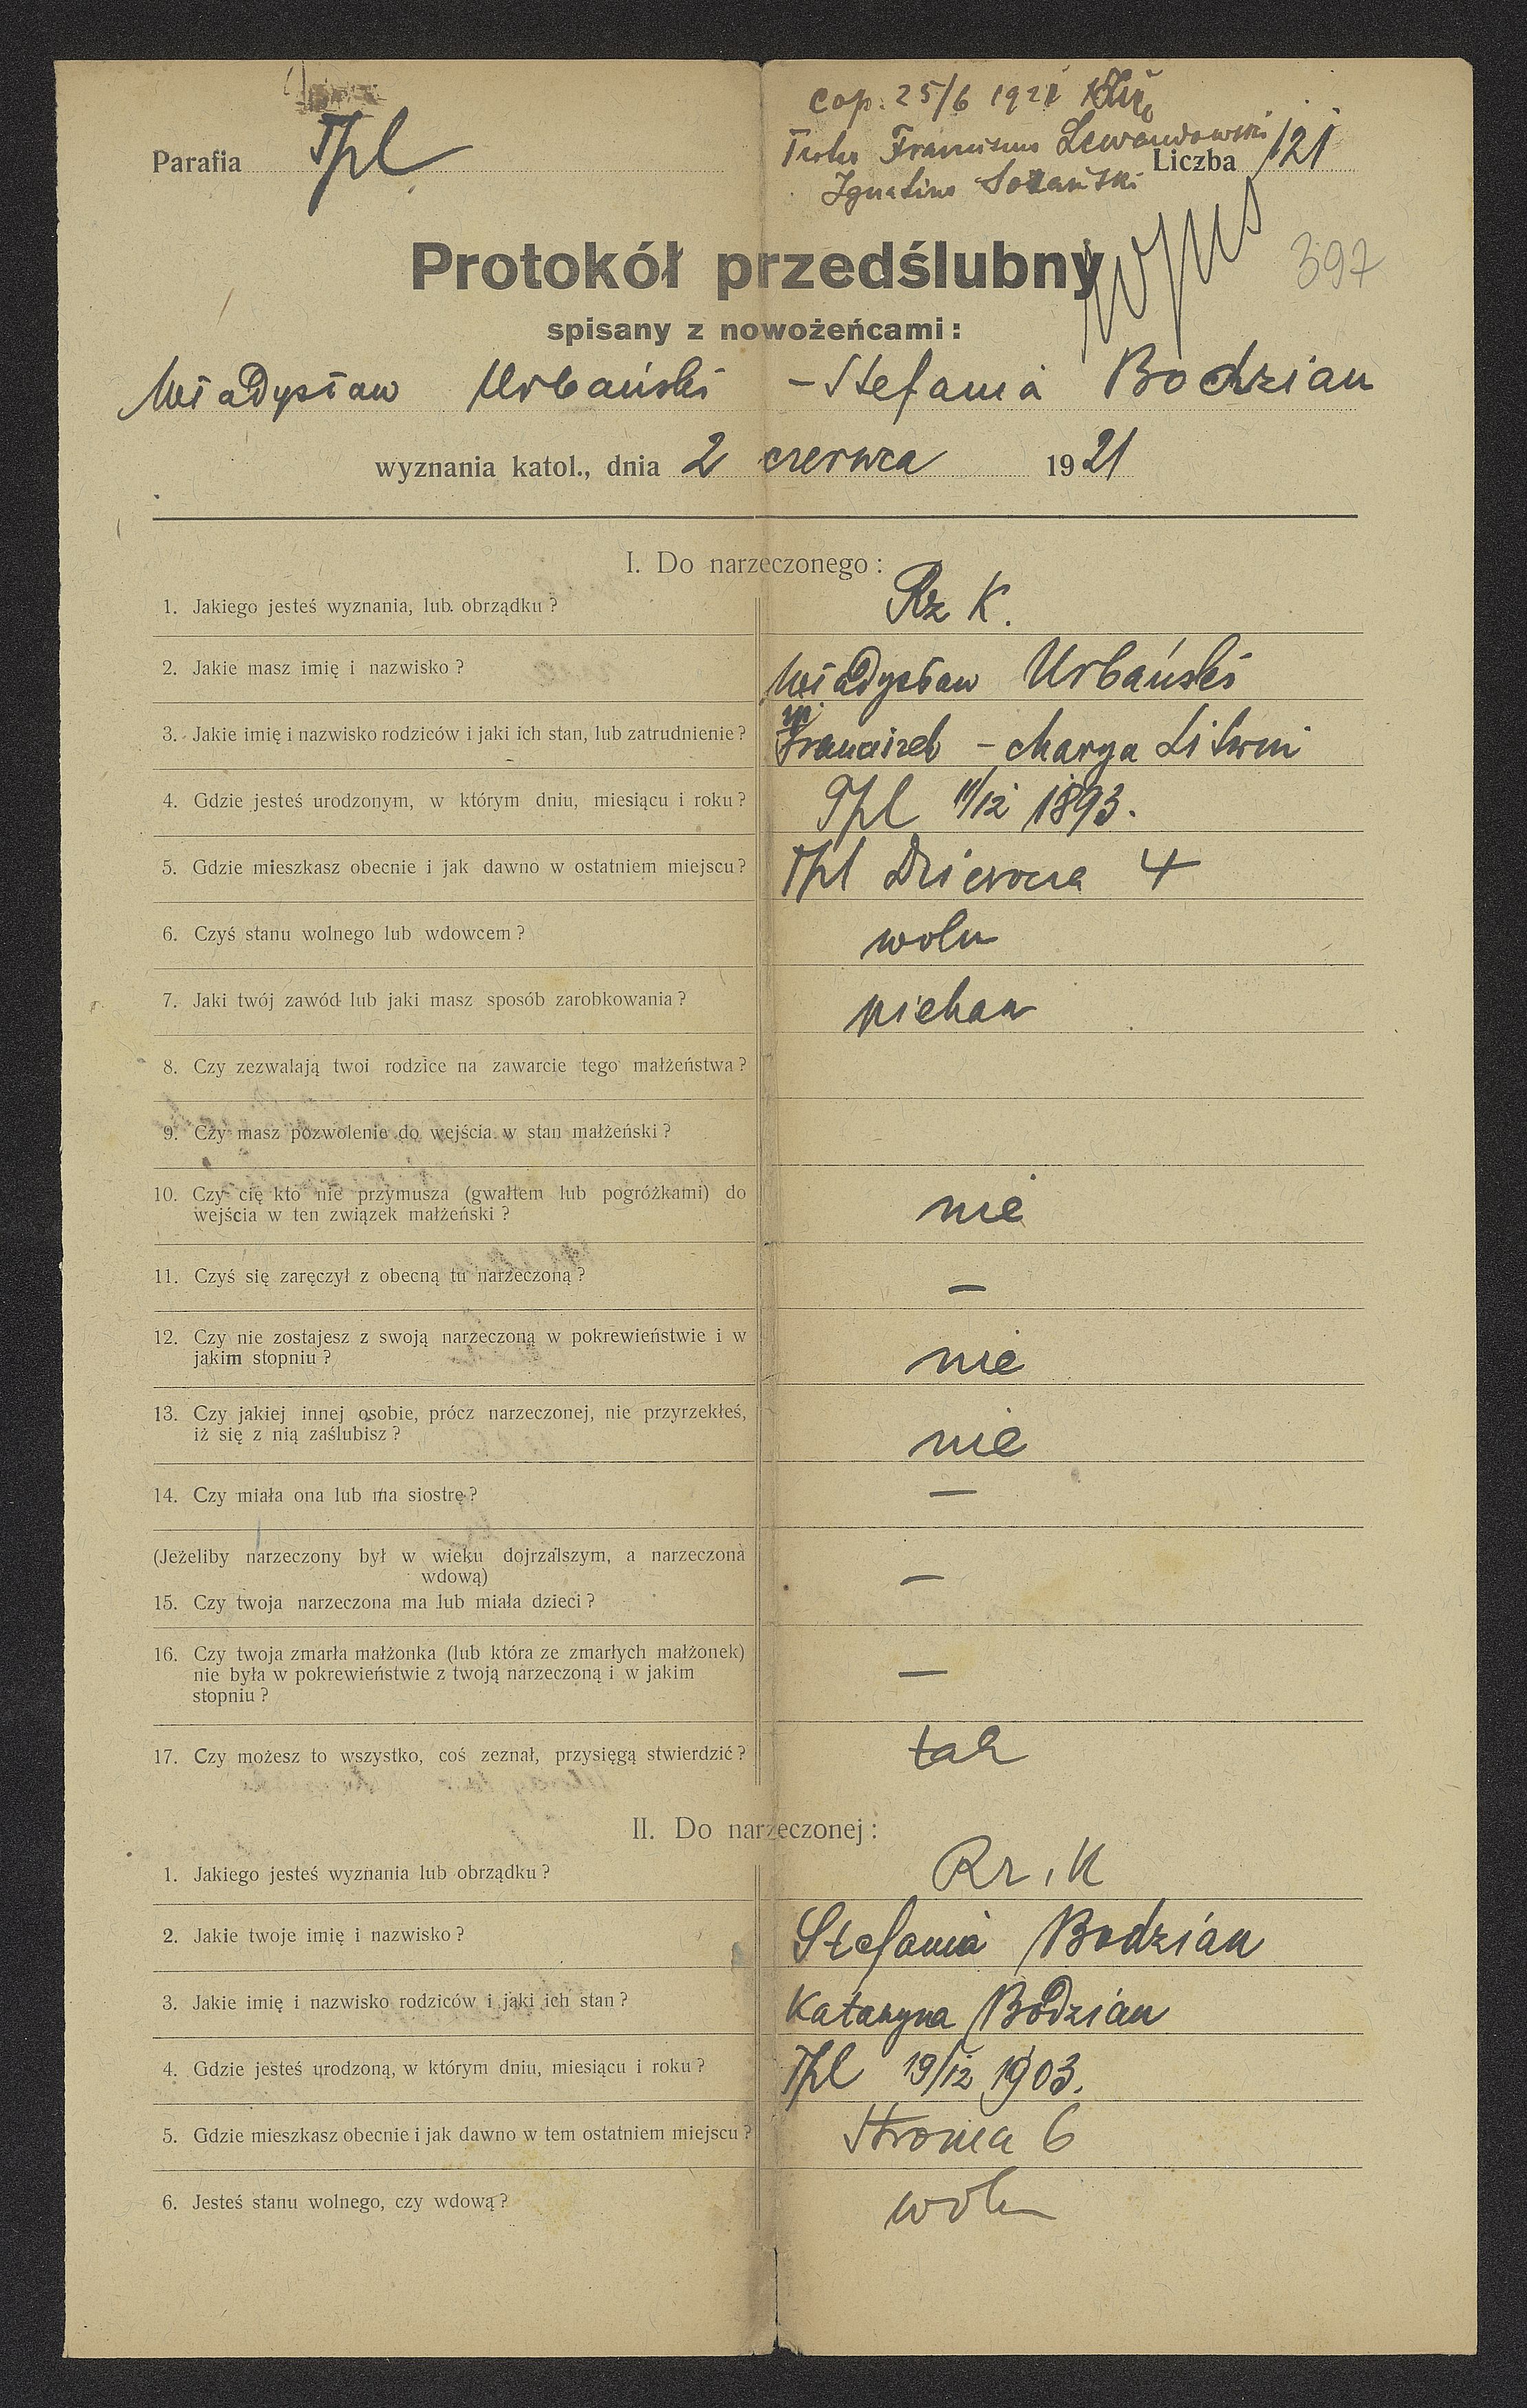 cop. 25/6 1921
Testes Franciscus Lewandowski
Parafia Tpl Liczba 121
Ignatius
397
Protokół przedślubny
spisany z nowożeńcami:
Władysław Urbański – Stefania Bodzian
wyznania katol., dnia 2 czerwca 1921
I. Do narzeczonego:
1. Jakiego jesteś wyznania, lub obrządku? Rz K.
2. Jakie masz imię i nazwisko? Władysław Urbański
3. Jakie imię i nazwisko rodziców i jaki ich stan, lub zatrudnienie? Franciszek – Marya Litwin
4. Gdzie jesteś urodzonym, w którym dniu, miesiącu i roku? Tpl 11/12 1893.
5. Gdzie mieszkasz obecnie i jak dawno w ostatniem miejscu? Tpl 4
6. Czyś stanu wolnego lub wdowcem? woln
7. Jaki twój zawód lub jaki masz sposób zarobkowania? piekarz
8. Czy zezwalają twoi rodzice na zawarcie tego małżeństwa?
9. Czy masz pozwolenie do wejścia w stan małżeński?
10. Czy cię kto nie przymusza (gwałtem lub pogróżkami) do
wejścia w ten związek małżeński? nie
11. Czyś się zaręczył z obecną tu narzeczoną? —
12. Czy nie zostajesz z swoją narzeczoną w pokrewieństwie i w
jakim stopniu? nie
13. Czy jakiej innej osobie, prócz narzeczonej, nie przyrzekłeś,
iż się z nią zaślubisz? nie
14. Czy miała ona lub ma siostrę? —
(Jeżeliby narzeczony był w wieku dojrzalszym, a narzeczona
wdową) —
15. Czy twoja narzeczona ma lub miała dzieci?
16. Czy twoja zmarła małżonka (lub która ze zmarłych małżonek)
nie była w pokrewieństwie z twoją narzeczoną i w jakim —
stopniu?
17. Czy możesz to wszystko, coś zeznał, przysięgą stwierdzić? tak
II. Do narzeczonej:
1. Jakiego jesteś wyznania lub obrządku? Rz. K
2. Jakie twoje imię i nazwisko? Stefania Bodzian
3. Jakie imię i nazwisko rodziców i jaki ich stan? Katarzyna Bodzian
4. Gdzie jesteś urodzoną, w którym dniu, miesiącu i roku? Tpl 19/12 1903.
5. Gdzie mieszkasz obecnie i jak dawno w tem ostatniem miejscu? Stroma 6
6. Jesteś stanu wolnego, czy wdową? woln